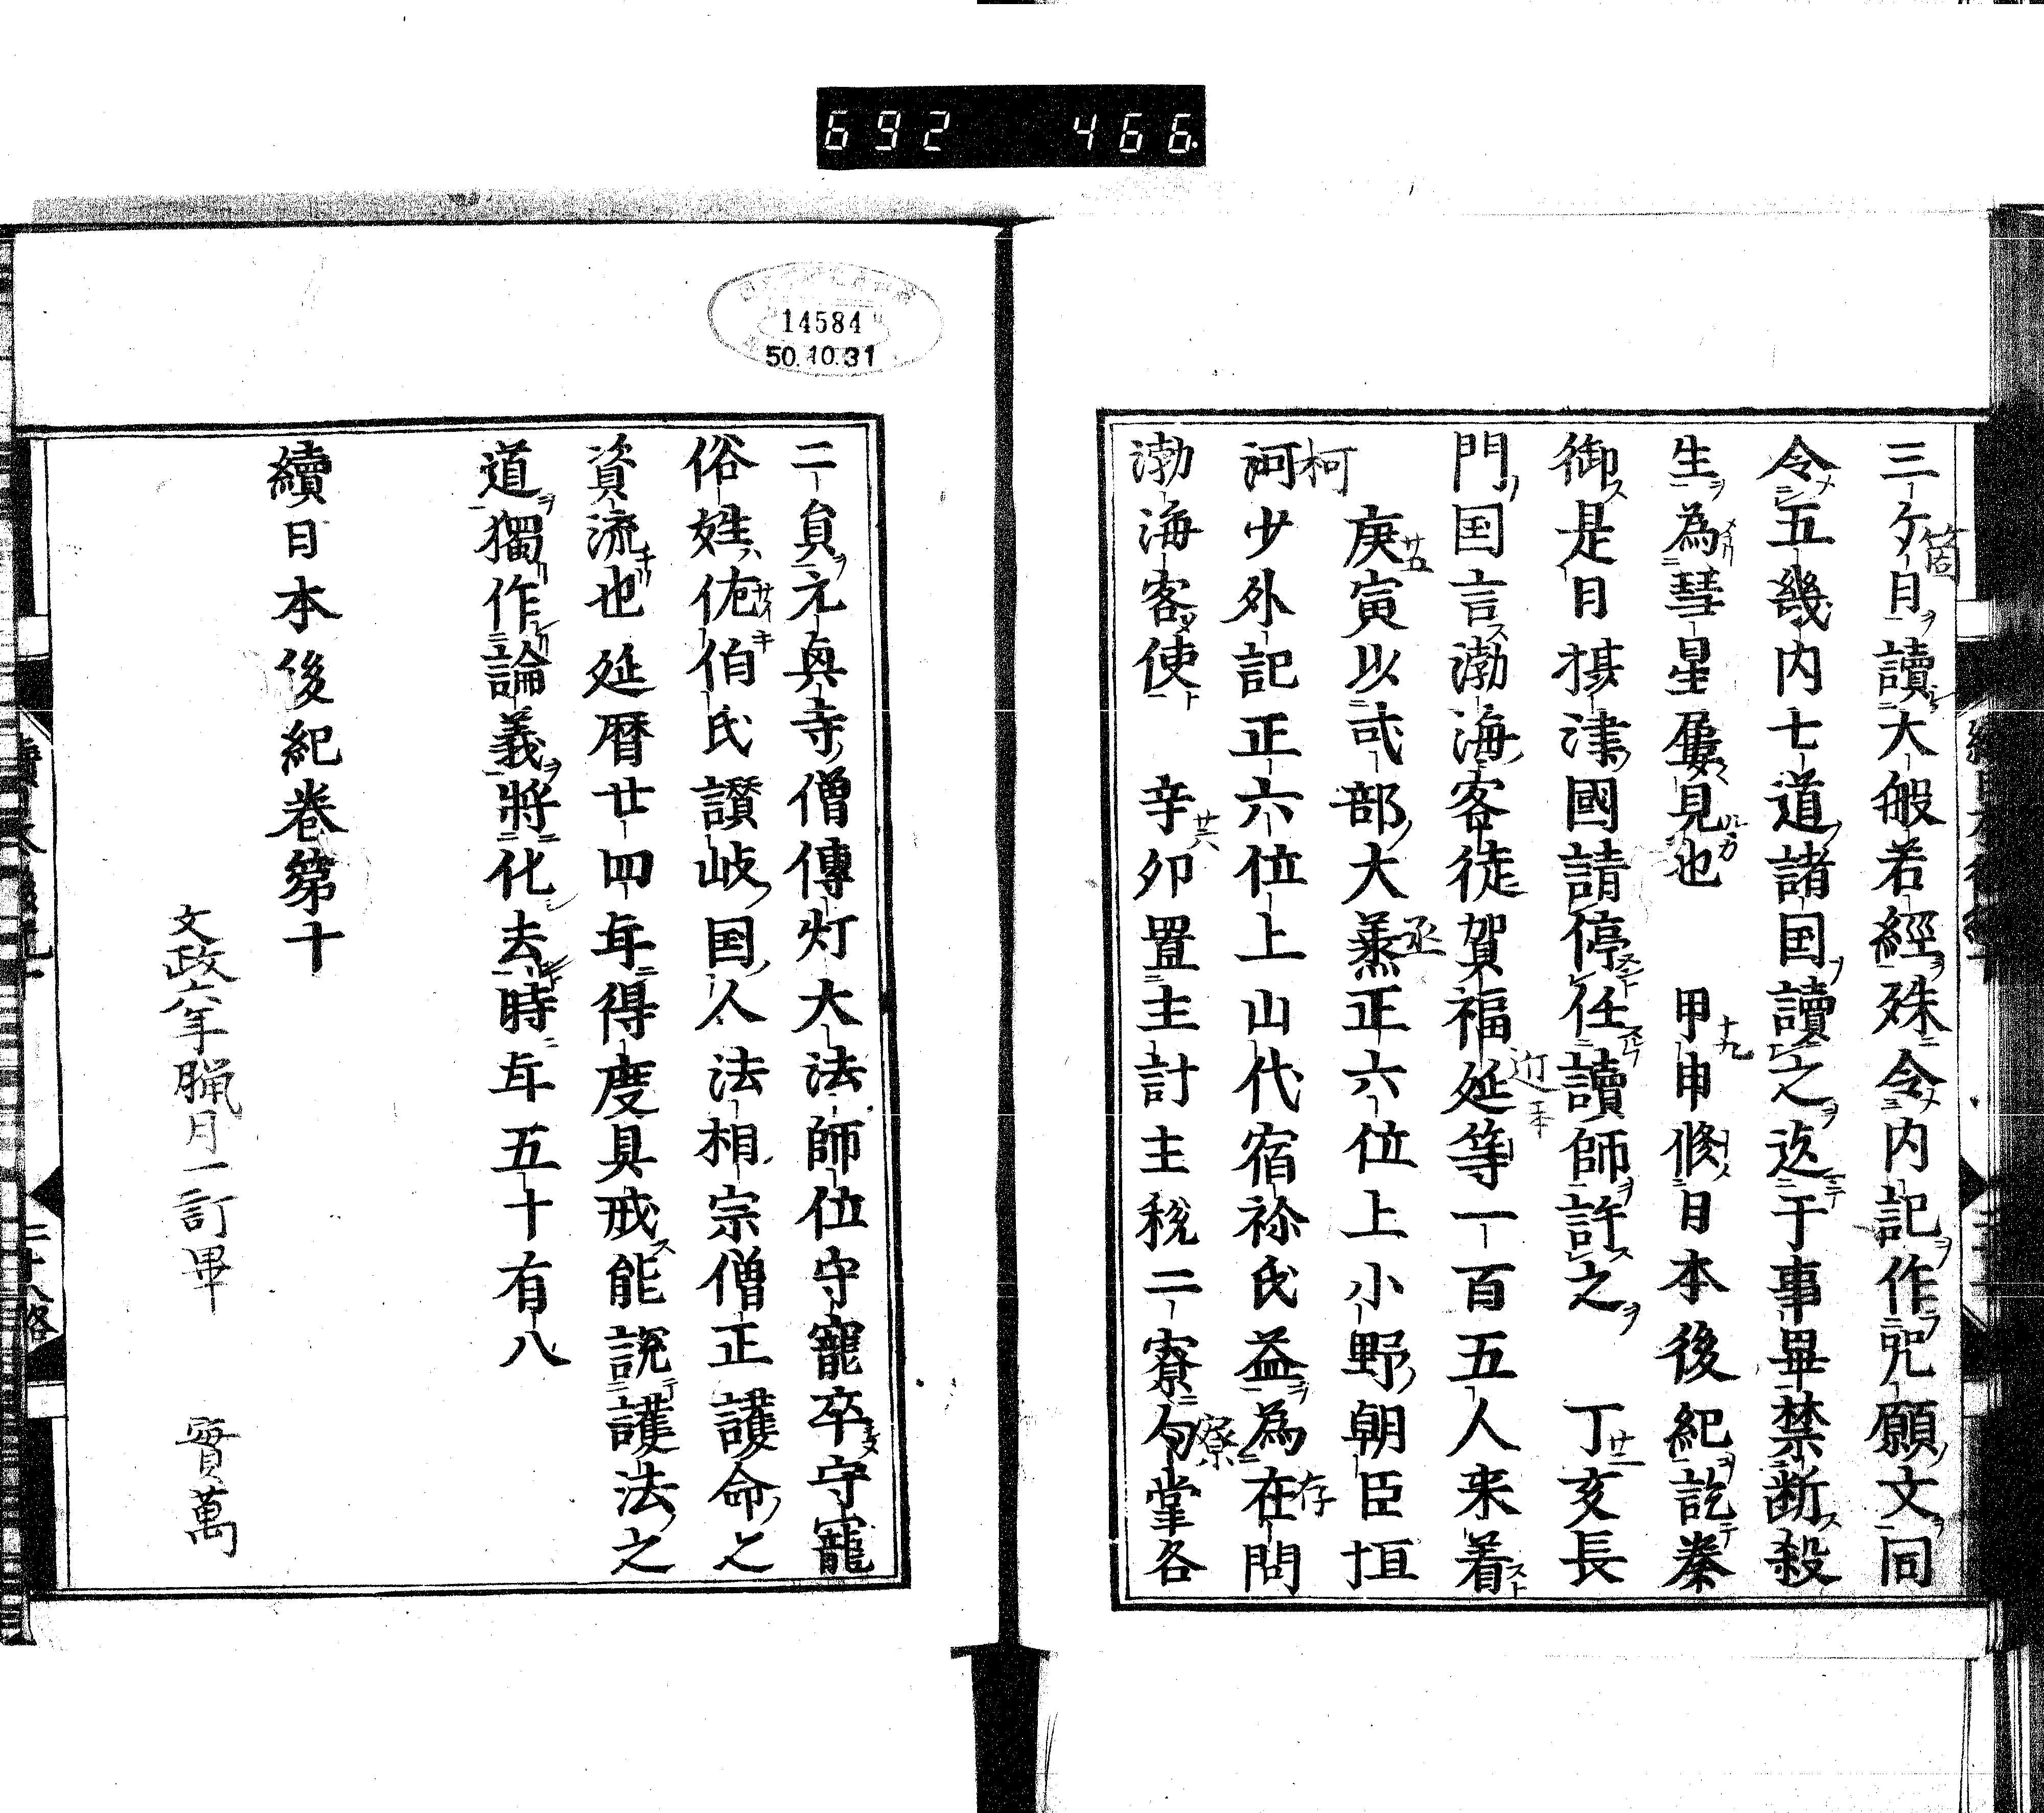 692 466
三ケ月讀大般若經殊令内記作咒願文同
箇
令五幾内七道諸国讀之迄于事畢禁断殺
生為彗星屢見也 甲申脩日本後紀訖奏
十九
御是日摂津國請停任讀師許之 丁亥長
廿二
門国言渤海客徒賀福延等一百五人来着
近 一本
庚寅以式部大蒸正六位上小野朝臣恒
廿五
丞
柯
訶少外記正六位上山代宿祢氏益為在問
存
渤海客使 辛卯置主計主税二寮勾掌各
廿六
寮
14584
50.10.31
二貟元興寺僧傳灯大法師位守寵卒守寵
俗姓佐伯氏讃岐国人法相宗僧正護命之
資流也延暦廿四年得度具戒能説護法之
道獨作論義將化去時年五十有八
續日本後紀巻第十
文政六年臘月一訂畢 實萬